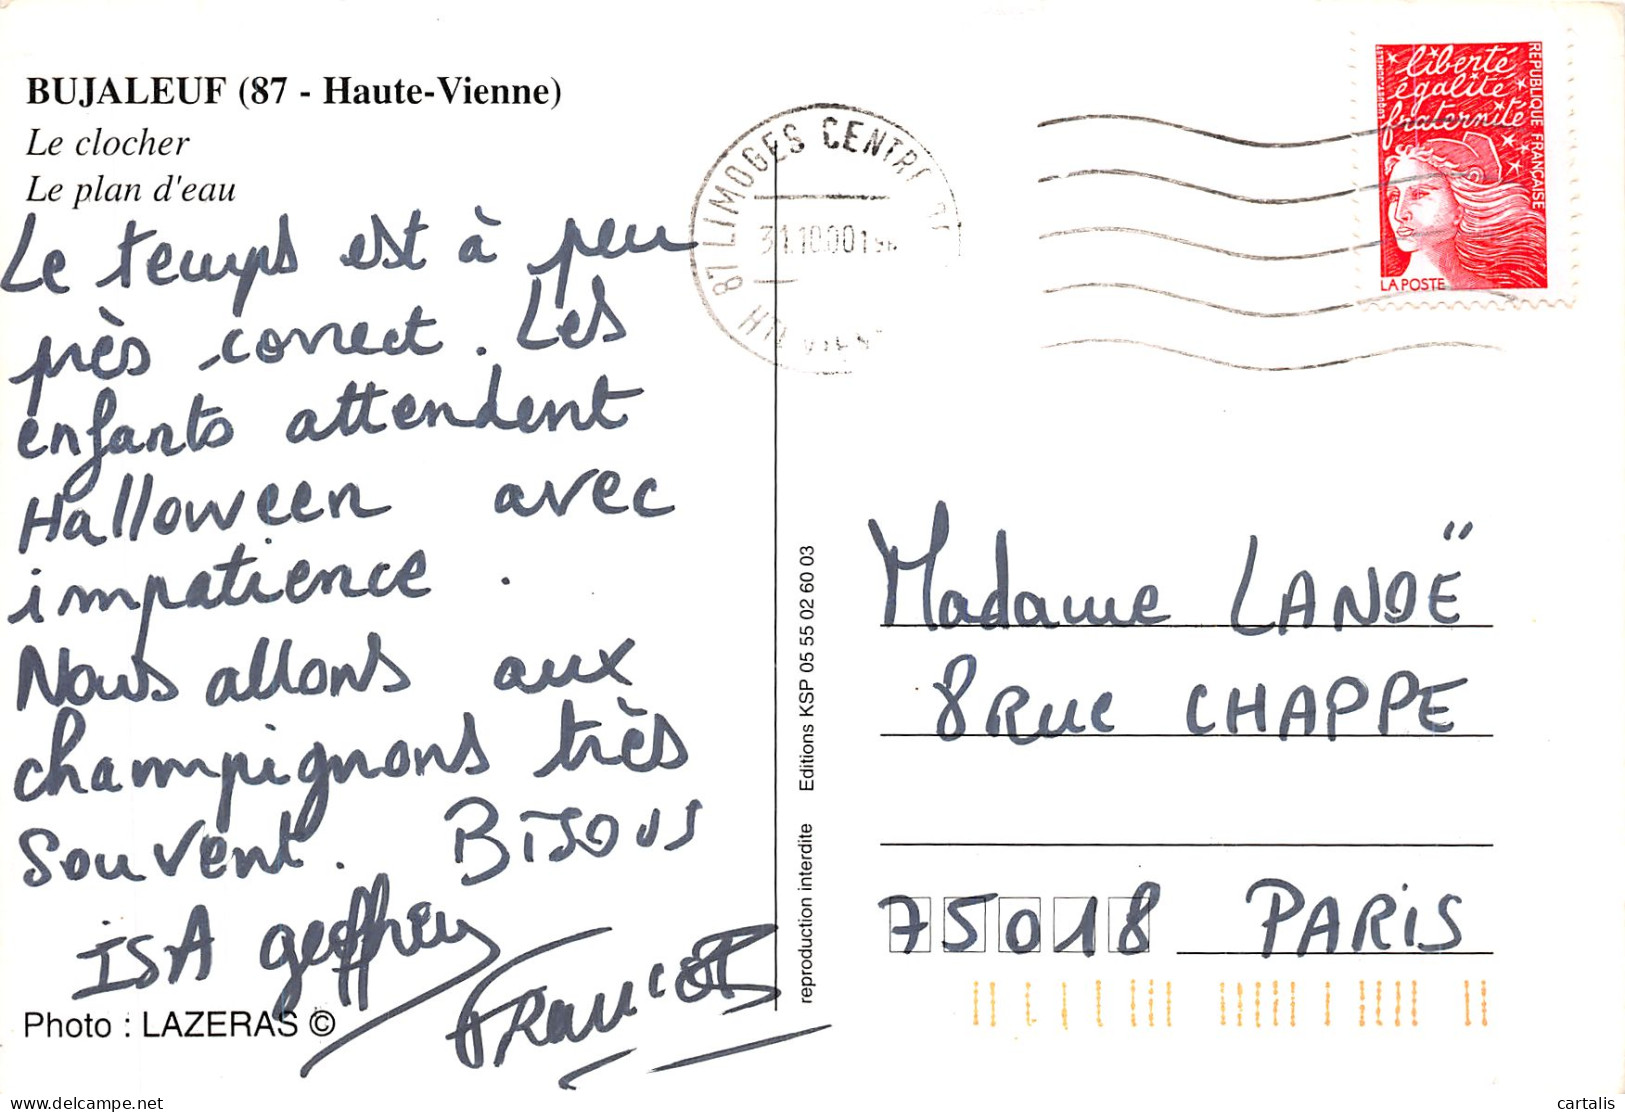 BUJALEUF (87 - Haute-Vienne)
Le clocher
Le plan d'eau
Le temps est à peu
près correct. Les
enfants attendent
Halloween avec
impatience.
Nous allons aux
champignons très
souvent. BISOUS
ISA Geoffrey
François
Photo : LAZERAS ©
reproduction interdite Editions KSP 05 55 02 60 03
87 LIMOGES CENTRE
31.10.00
liberté
égalité
fraternité
RÉPUBLIQUE FRANÇAISE
LA POSTE
Madame LANOË
8 RUE CHAPPE
75018 PARIS
cartalis